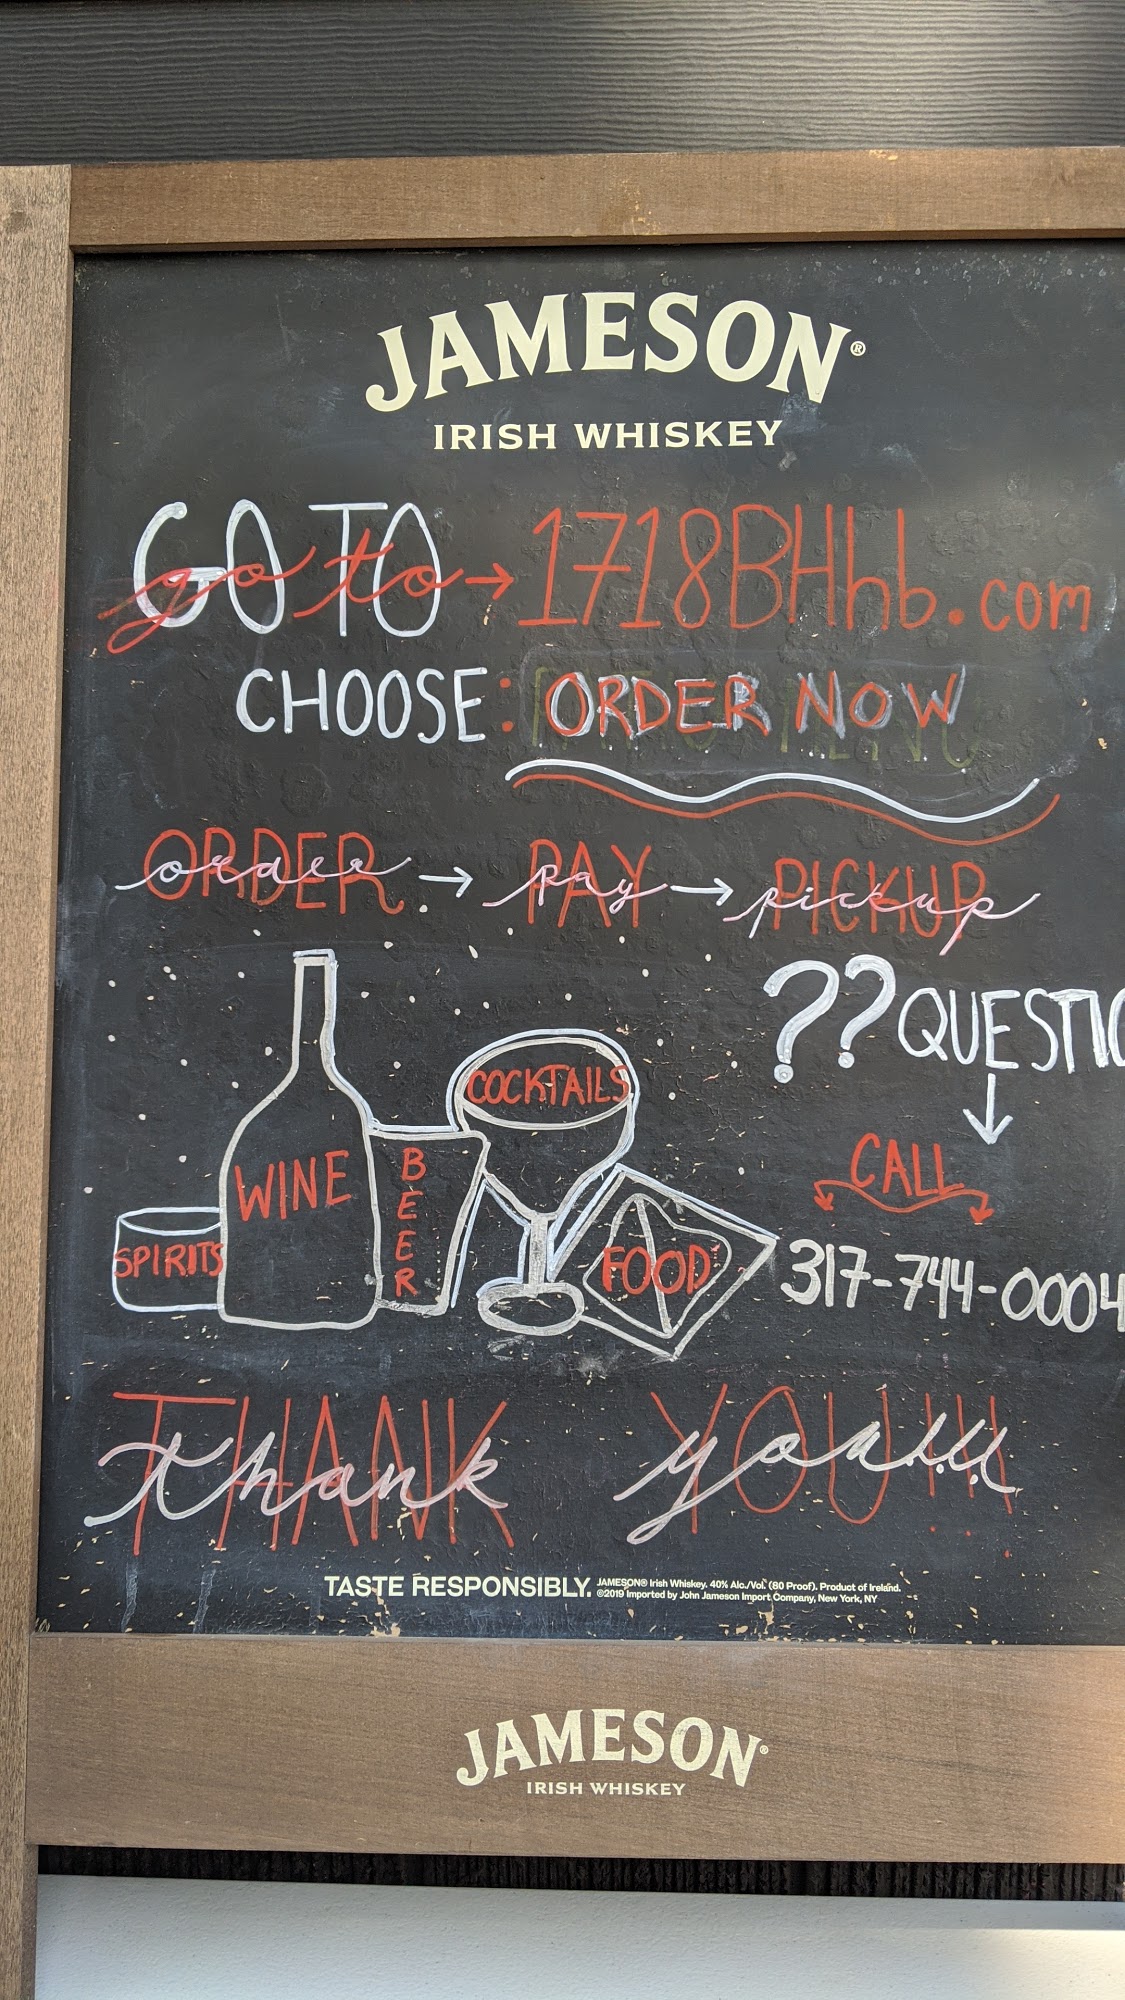 JAMESON®
IRISH WHISKEY
GO TO go to → 1718BHhb.com
CHOOSE: ORDER NOW
ORDER order → PAY pay → PICKUP pickup
?? QUESTIO
CALL
317-744-0004
COCKTAILS
WINE
BEER
SPIRITS
FOOD
THANK thank YOU!!! you!!!
TASTE RESPONSIBLY. JAMESON® Irish Whiskey. 40% Alc./Vol. (80 Proof). Product of Ireland.
©2019 Imported by John Jameson Import Company, New York, NY
JAMESON®
IRISH WHISKEY